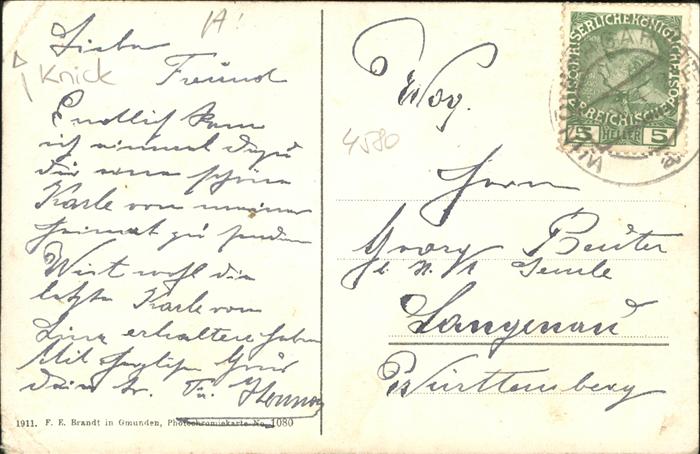 Lieber
Freund
Knick
Endlich kam
ich einmal dazu
dir eine schöne
Karte von meiner
Heimat zu senden
Wirst wohl die
letzte Karte von
Linz erhalten haben
Mit herzlichem Gruß
dein
1911. F. E. Brandt in Gmunden, Photochromiekarte No. 1080
4580
KAISERLICHE KÖNIGLICHE ÖSTERREICHISCHE POST
5 HELLER 5
Herrn
Georg Beuter
Langenau
Württemberg